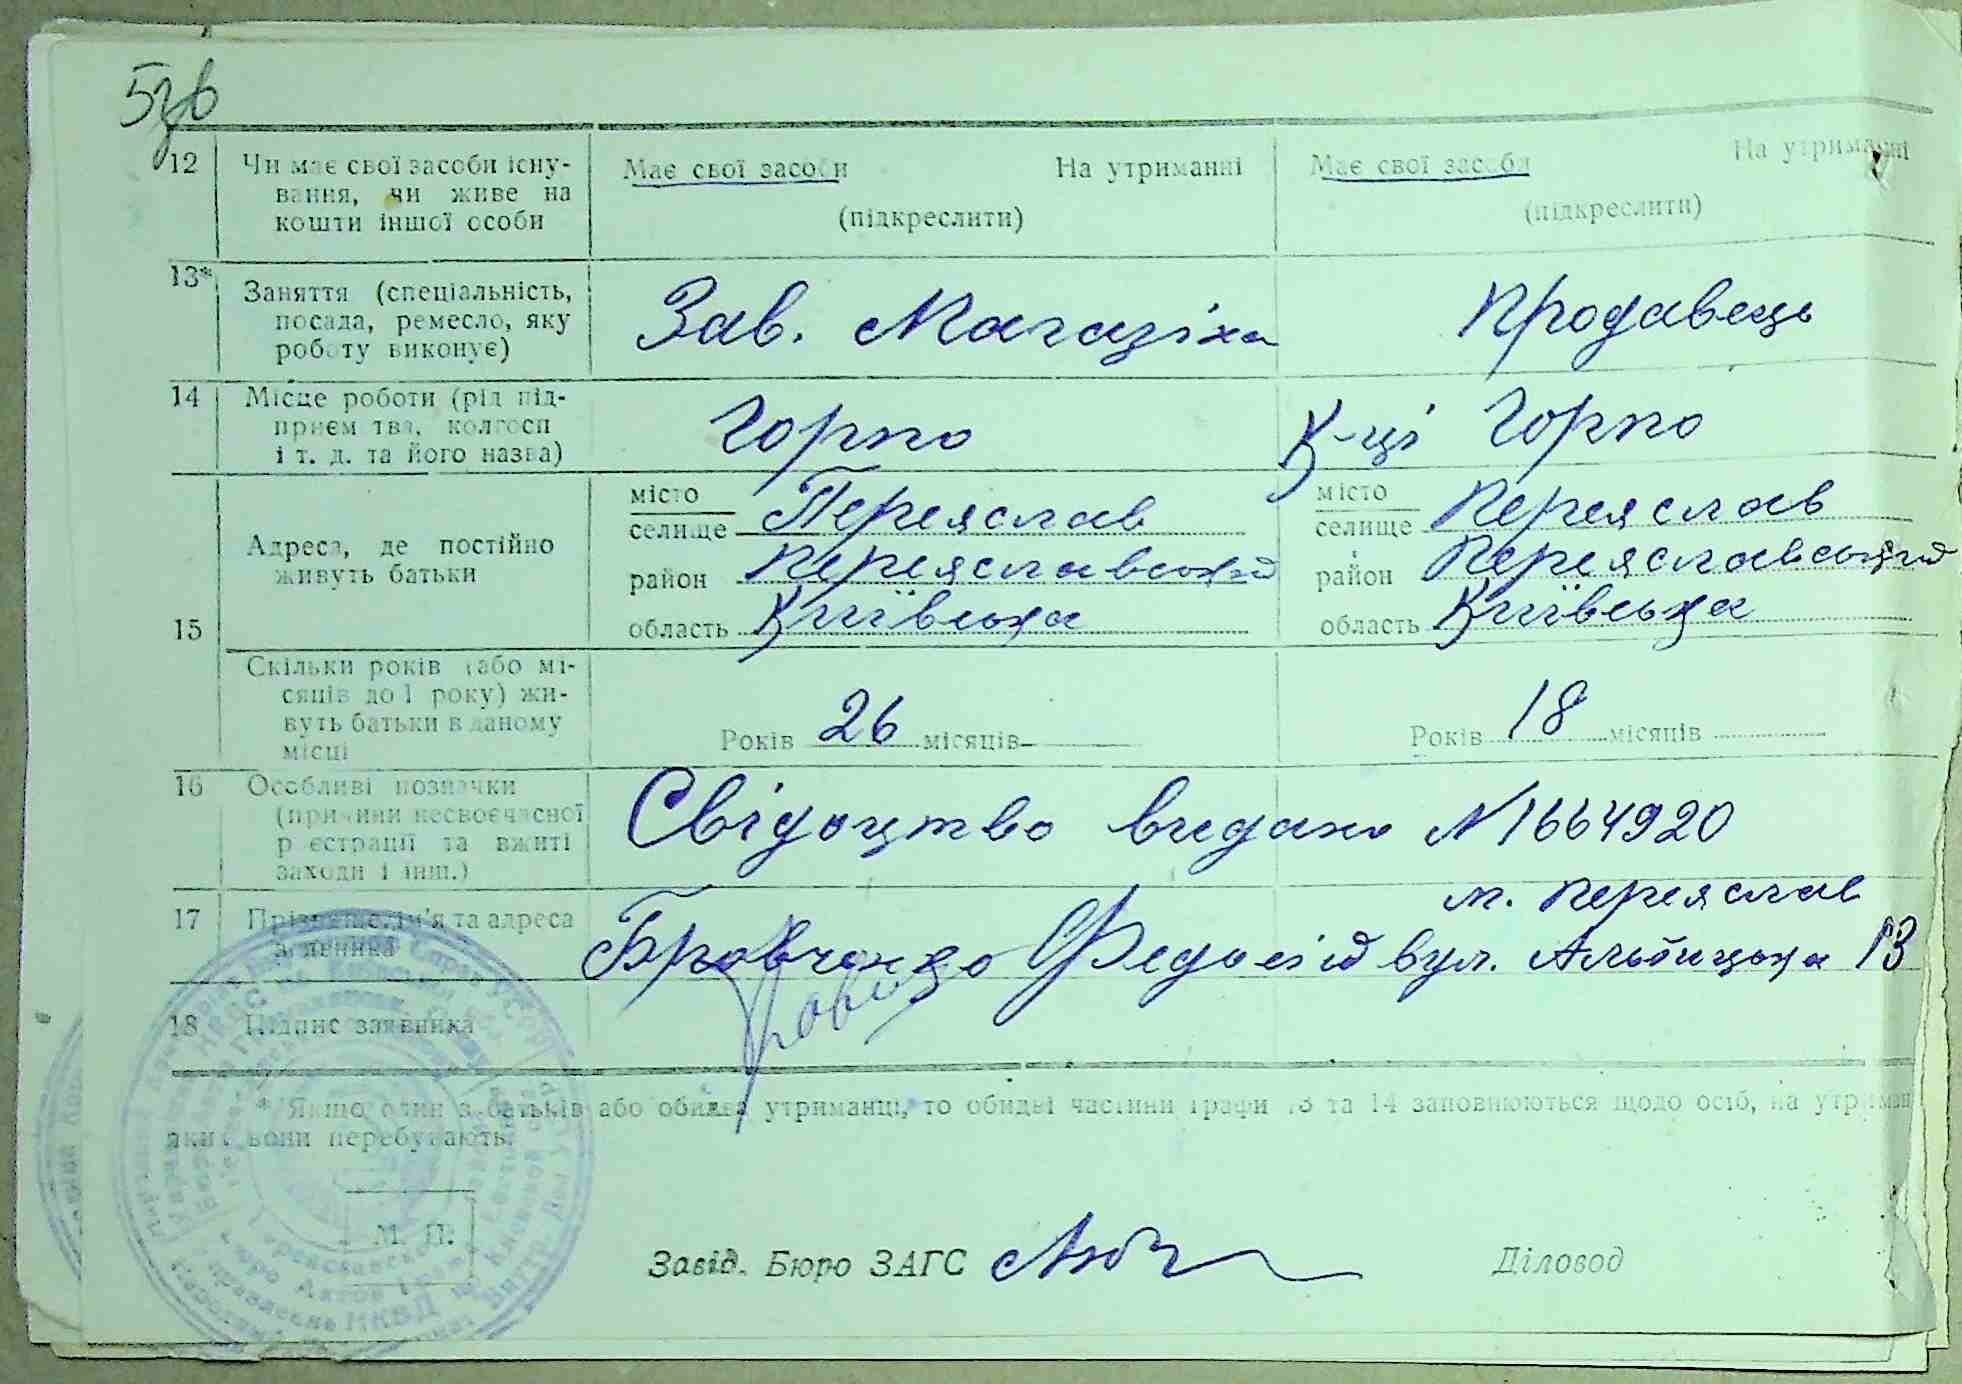 5зв
12 Чи має свої засоби існу- Має свої засоби На утриманні Має свої засоби На утриманні
вання, чи живе на (підкреслити) (підкреслити)
кошти іншої особи
13* Заняття (спеціальність, Зав. Магазіна Продавець
посада, ремесло, яку
роботу виконує)
14 Місце роботи (рід під- Горпо К-ці Горпо
приєм тва, колгосп
і т. д. та його назва)
15 Адреса, де постійно живуть батьки
місто селище Переяслав місто селище Переяслав
район Переяславський район Переяславський
область Київська область Київська
Скільки років (або мі-
сяців до 1 року) жи-
вуть батьки в даному
місці
Років 26 місяців Років 18 місяців
16 Особливі позначки Свідоцтво видано N1664920
(причини несвоєчасної
р єстрації та вжиті
заходи і інш.)
м. Переяслав
17 Прізвище, ім'я та адреса Бровченко Федосій вул. Альтицька 13
заявника
18 Підпис заявника
* Якщо один з батьків або обидва утриманці, то обидві частини графи 13 та 14 заповнюються щодо осіб, на утриман
яких вони перебувають.
М. П.
Завід. Бюро ЗАГС Діловод